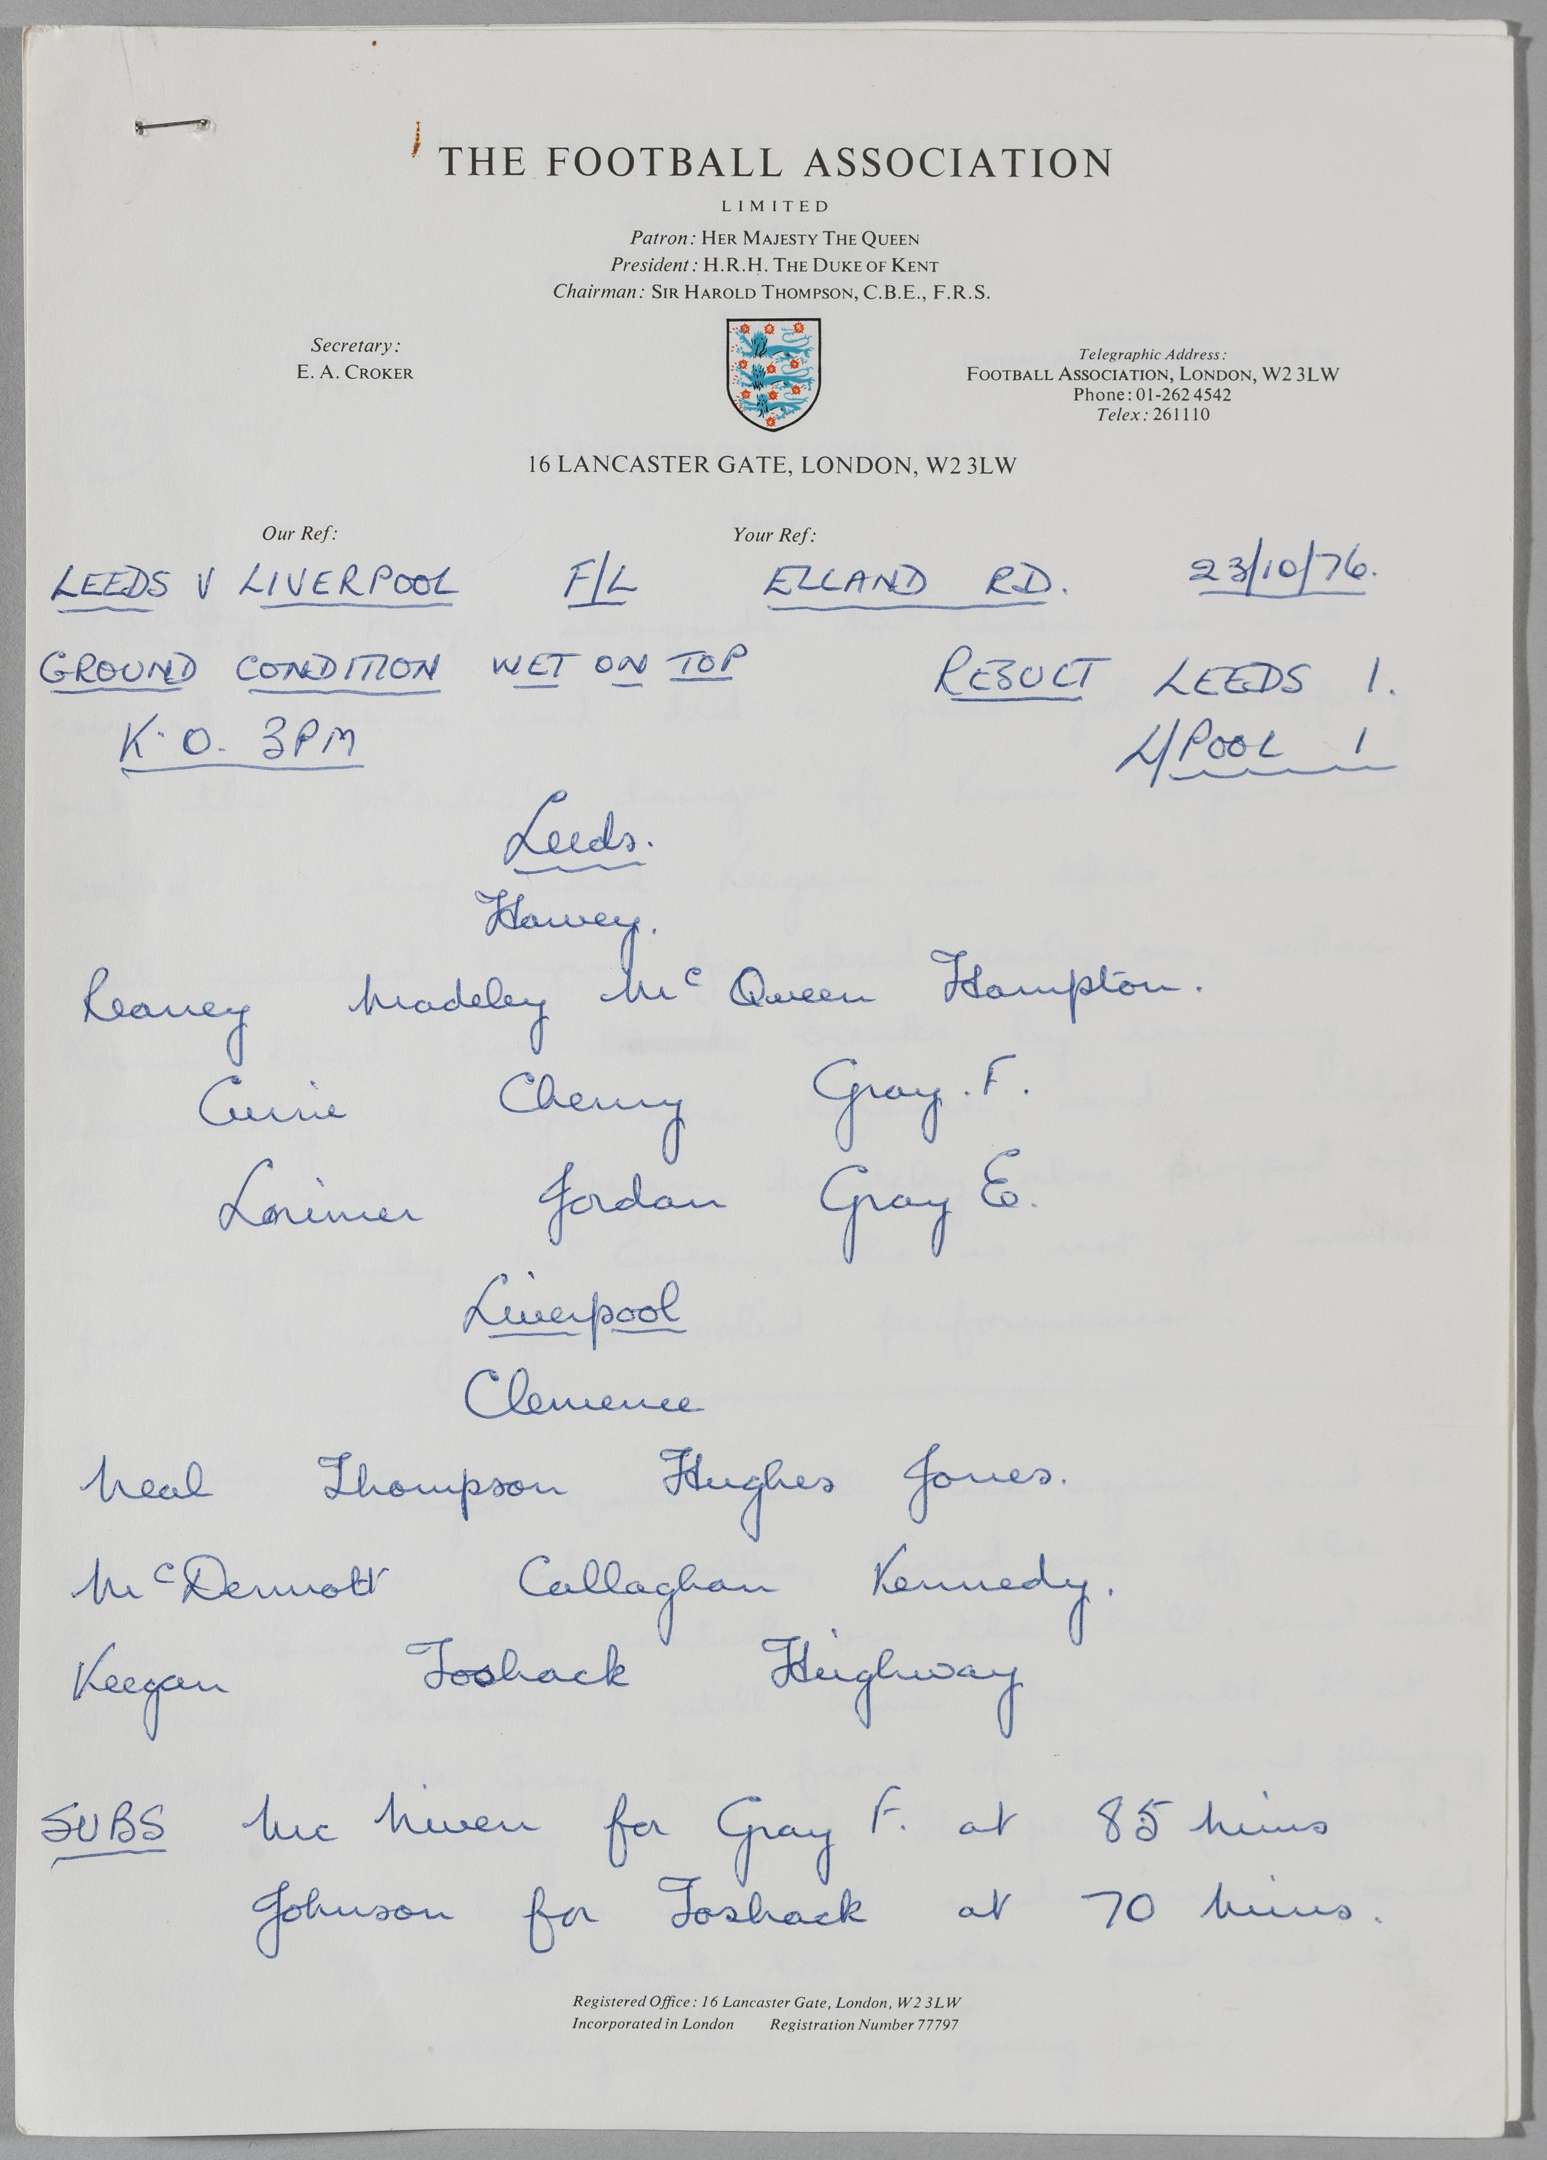 THE FOOTBALL ASSOCIATION
LIMITED
Patron: HER MAJESTY THE QUEEN
President: H.R.H. THE DUKE OF KENT
Chairman: SIR HAROLD THOMPSON, C.B.E., F.R.S.
Secretary:
E. A. CROKER
Telegraphic Address:
FOOTBALL ASSOCIATION, LONDON, W2 3LW
Phone: 01-262 4542
Telex: 261110
16 LANCASTER GATE, LONDON, W2 3LW
Our Ref: Your Ref:
LEEDS V LIVERPOOL F/L ELLAND RD. 23/10/76.
GROUND CONDITION WET ON TOP RESULT LEEDS 1.
K.O. 3PM L/POOL 1
Leeds.
Harvey.
Reaney Madeley McQueen Hampton.
Currie Cherry Gray. F.
Lorimer Jordan Gray E.
Liverpool
Clemence
Neal Thompson Hughes Jones.
McDermott Callaghan Kennedy.
Keegan Toshack Heighway
SUBS McNiven for Gray F. at 85 mins
Johnson for Toshack at 70 mins.
Registered Office: 16 Lancaster Gate, London, W2 3LW
Incorporated in London Registration Number 77797